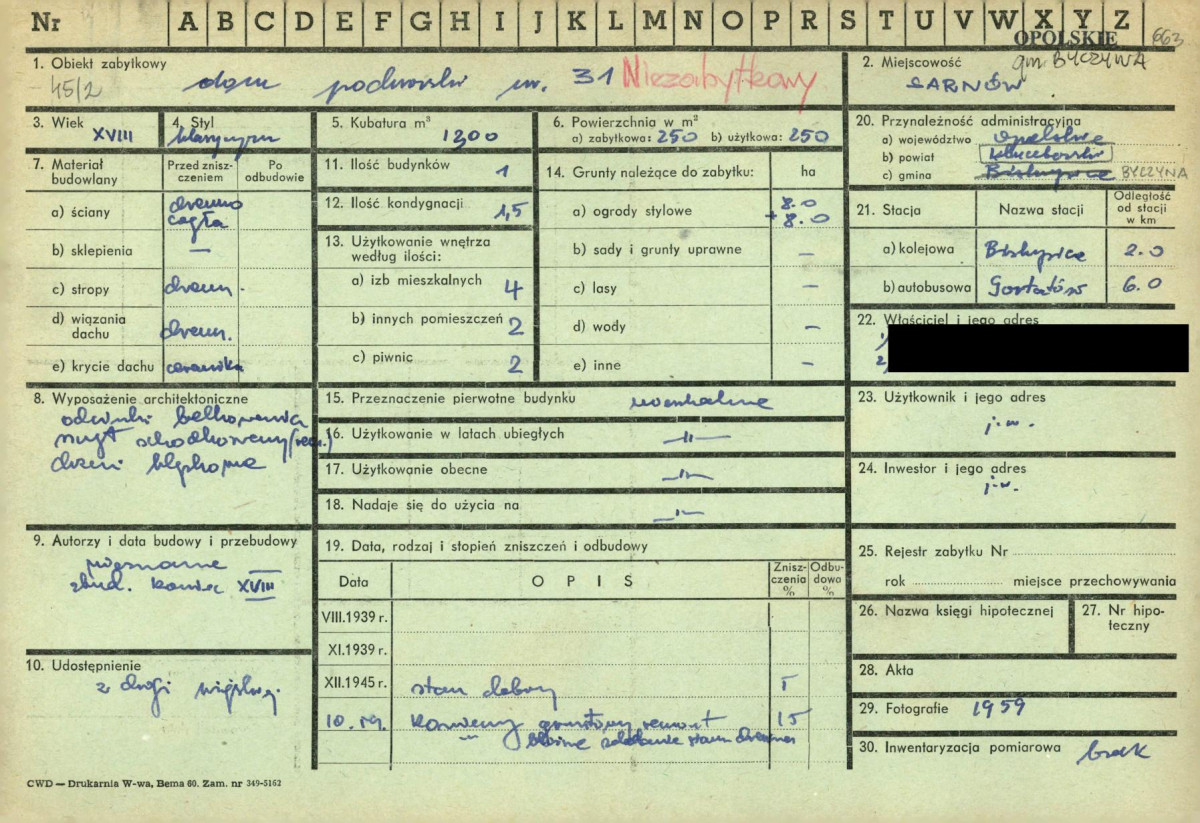 Nr A B C D E F G H I J K L M N O P R S T U V W X Y Z
OPOLSKIE 663
1. Obiekt zabytkowy
45/2 dom podworski nr. 31 Niezabytkowy
2. Miejscowość gm BYCZYNA
SARNÓW
3. Wiek
XVIII
4. Styl
klasycyzm
5. Kubatura m³
1300
6. Powierzchnia w m²
a) zabytkowa: 250 b) użytkowa: 250
7. Materiał budowlany
Przed zniszczeniem
Po odbudowie
a) ściany drewno
cegła
b) sklepienia —
c) stropy drewn.
d) wiązania dachu drewn.
e) krycie dachu ceramika
8. Wyposażenie architektoniczne
belkowania
szczyt schodkowy
9. Autorzy i data budowy i przebudowy
nieznane
zbud. koniec XVIII
10. Udostępnienie
z drogi wiejskiej.
11. Ilość budynków 1
12. Ilość kondygnacji 1,5
13. Użytkowanie wnętrza według ilości:
a) izb mieszkalnych 4
b) innych pomieszczeń 2
c) piwnic 2
14. Grunty należące do zabytku: ha
a) ogrody stylowe 8.0
+ 8.0
b) sady i grunty uprawne —
c) lasy —
d) wody —
e) inne —
15. Przeznaczenie pierwotne budynku mieszkalne
16. Użytkowanie w latach ubiegłych —„—
17. Użytkowanie obecne —„—
18. Nadaje się do użycia na —„—
19. Data, rodzaj i stopień zniszczeń i odbudowy
Data OPIS Zniszczenia % Odbudowa %
VIII.1939 r.
XI.1939 r.
XII.1945 r. stan dobry
10. konieczny gruntowny remont 15
20. Przynależność administracyjna
a) województwo opolskie
b) powiat kluczborski
c) gmina Biskupice BYCZYNA
21. Stacja Nazwa stacji Odległość od stacji w km
a) kolejowa Biskupice 2.0
b) autobusowa Gostatów 6.0
22. Właściciel i jego adres
1)
2)
23. Użytkownik i jego adres
j.w.
24. Inwestor i jego adres
j.w.
25. Rejestr zabytku Nr
rok miejsce przechowywania
26. Nazwa księgi hipotecznej
27. Nr hipoteczny
28. Akta
29. Fotografie 1959
30. Inwentaryzacja pomiarowa brak
CWD — Drukarnia W-wa, Bema 60. Zam. nr 349-5162